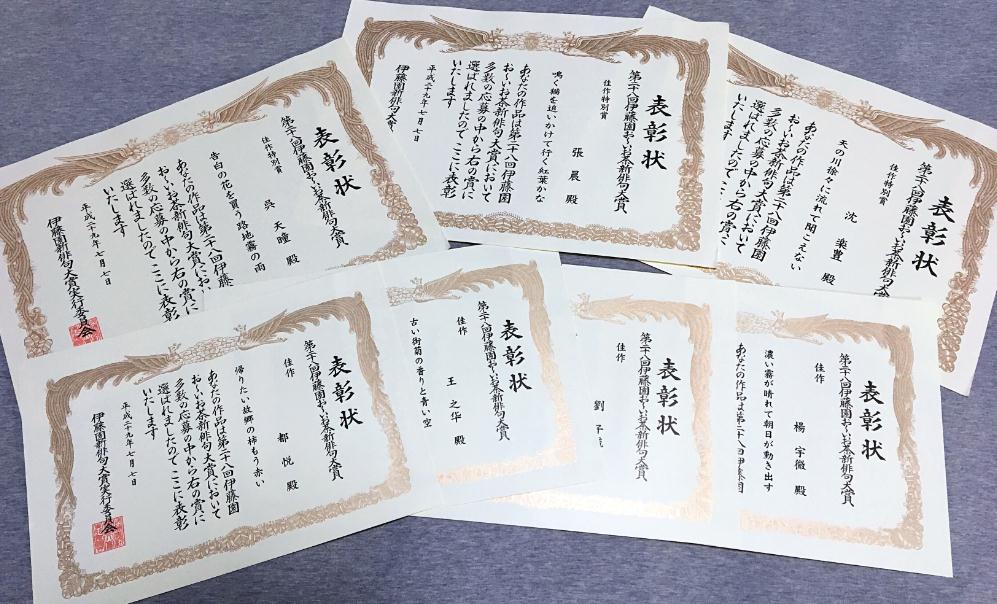 表彰状
第二十八回伊藤園お〜いお茶新俳句大賞
佳作特別賞
呉 天曈 殿
告白の花を買う路地霧の雨
あなたの作品は第二十八回伊藤園
お〜いお茶新俳句大賞にお
多数の応募の中から右の賞に
選ばれましたのでここに表彰
いたします
平成二十九年七月七日
伊藤園新俳句大賞実行委員会
表彰状
第二十八回伊藤園お〜いお茶新俳句大賞
佳作特別賞
張 晨 殿
鳴く猫を追いかけて行く紅葉かな
あなたの作品は第二十八回伊藤園
お〜いお茶新俳句大賞において
多数の応募の中から右の賞に
選ばれましたのでここに表彰
いたします
平成二十九年七月七日
伊藤園新俳句大賞
表彰状
第二十八回伊藤園お〜いお茶新俳句大賞
佳作特別賞
沈 楽豊 殿
天の川徐々に流れて聞こえない
あなたの作品は第二十八回伊藤園
お〜いお茶新俳句大賞において
多数の応募の中から右の賞に
選ばれましたのでここ
いたします
表彰状
第二十八回伊藤園お〜いお茶新俳句大賞
佳作
都 悦 殿
帰りたい故郷の柿もう赤い
あなたの作品は第二十八回伊藤園
お〜いお茶新俳句大賞において
多数の応募の中から右の賞に
選ばれましたのでここに表彰
いたします
平成二十九年七月七日
伊藤園新俳句大賞実行委員会
表彰状
第二十八回伊藤園お〜いお茶新俳句大賞
佳作
王 之华 殿
古い街菊の香りと青い空
表彰状
第二十八回伊藤園お〜いお茶新俳句大賞
佳作
劉
表彰状
第二十八回伊藤園お〜いお茶新俳句大賞
佳作
楊 宇徹 殿
濃い霧が晴れて朝日が動き出す
あなたの作品は第二十八回伊藤園